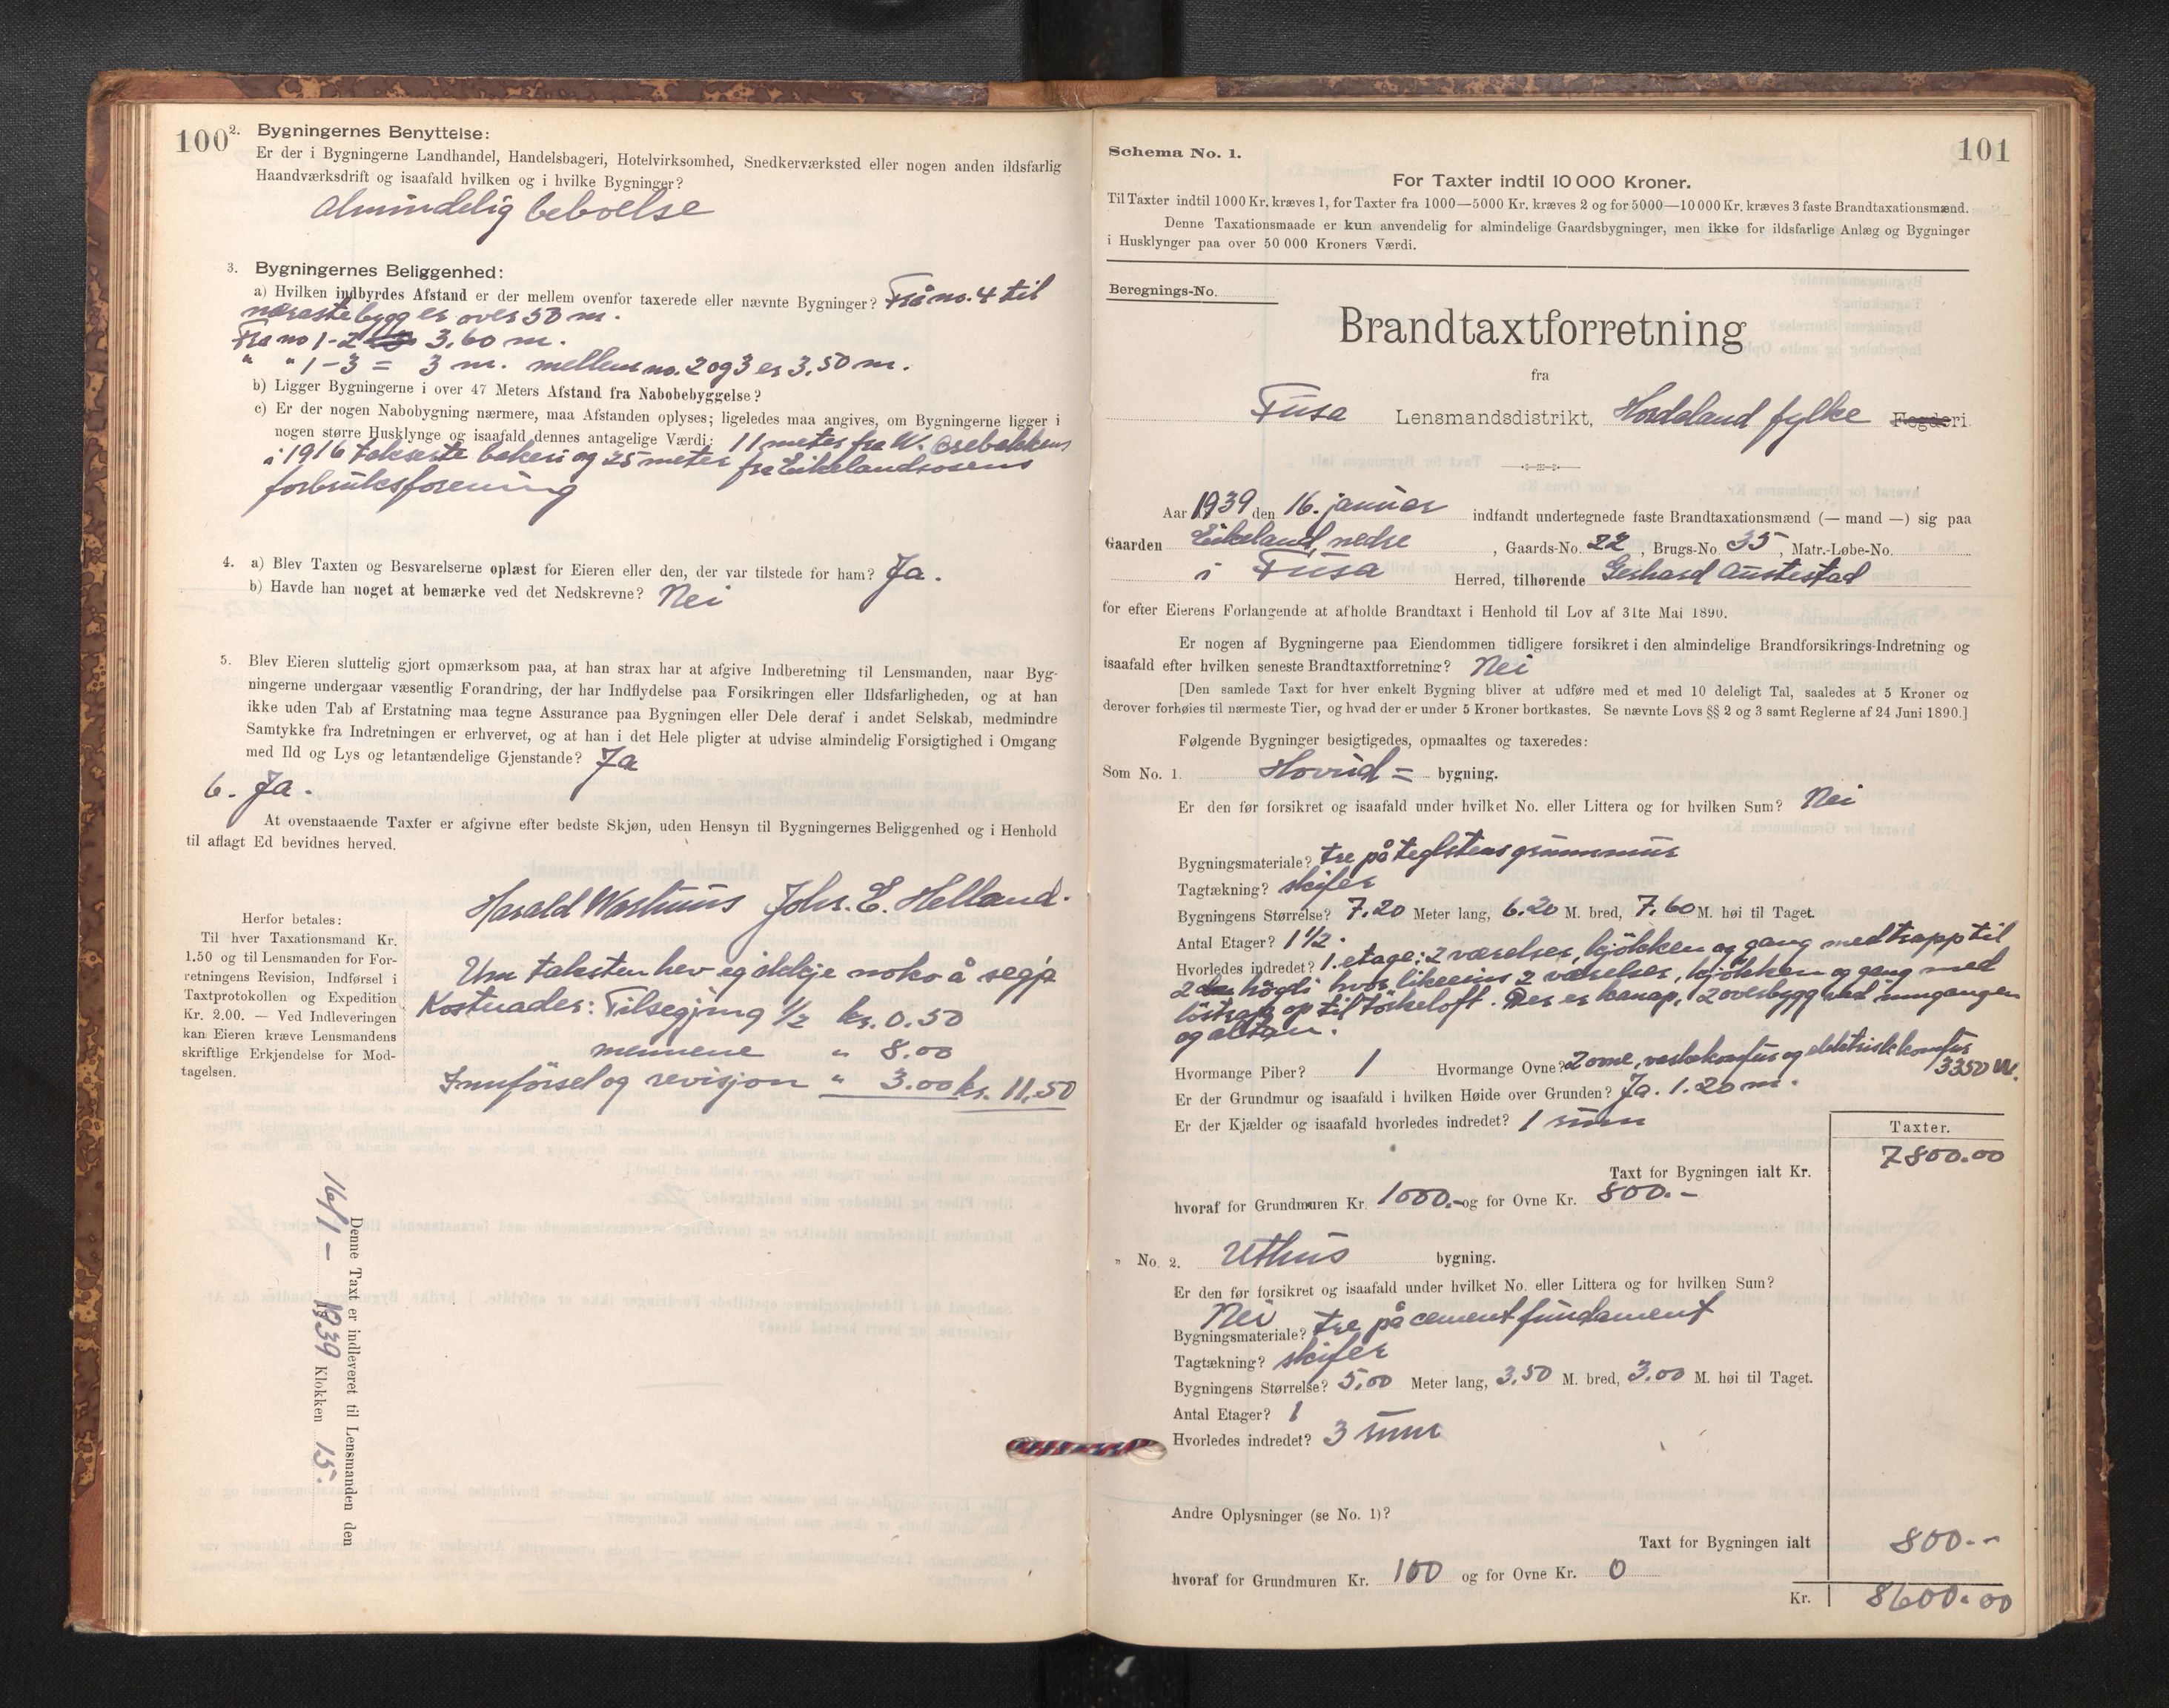 100
2. Bygningernes Benyttelse:
Er der i Bygningerne Landhandel, Handelsbageri, Hotelvirksomhed, Snedkerværksted eller nogen anden ildsfarlig
Haandværksdrift og isaafald hvilken og i hvilke Bygninger?
almindelig beboelse
3. Bygningernes Beliggenhed:
a) Hvilken indbyrdes Afstand er der mellem ovenfor taxerede eller nævnte Bygninger? Frå no. 4 til
næraste bygg er over 50 m.
Fra no 1-2 3,60 m.
" " 1-3 = 3 m. mellem no. 2 og 3 er 3,50 m.
b) Ligger Bygningerne i over 47 Meters Afstand fra Nabobebyggelse?
c) Er der nogen Nabobygning nærmere, maa Afstanden oplyses; ligeledes maa angives, om Bygningerne ligger i
nogen større Husklynge og isaafald dennes antagelige Værdi: 11 meter fra W.
i 1916 takserte bakeri og 25 meter fra Eikelandsosens
forbruksforening
4. a) Blev Taxten og Besvarelserne oplæst for Eieren eller den, der var tilstede for ham? Ja.
b) Havde han noget at bemærke ved det Nedskrevne? Nei
5. Blev Eieren sluttelig gjort opmærksom paa, at han strax har at afgive Indberetning til Lensmanden, naar Byg-
ningerne undergaar væsentlig Forandring, der har Indflydelse paa Forsikringen eller Ildsfarligheden, og at han
ikke uden Tab af Erstatning maa tegne Assurance paa Bygningen eller Dele deraf i andet Selskab, medmindre
Samtykke fra Indretningen er erhvervet, og at han i det Hele pligter at udvise almindelig Forsigtighed i Omgang
med Ild og Lys og letantændelige Gjenstande? Ja
6. Ja.
At ovenstaaende Taxter er afgivne efter bedste Skjøn, uden Hensyn til Bygningernes Beliggenhed og i Henhold
til aflagt Ed bevidnes herved.
Harald Johs. E. Helland.
Herfor betales:
Til hver Taxationsmand Kr.
1.50 og til Lensmanden for For-
retningens Revision, Indførsel i
Taxtprotokollen og Expedition
Kr. 2.00. — Ved Indleveringen
kan Eieren kræve Lensmandens
skriftlige Erkjendelse for Mod-
tagelsen.
Um taksten hev eg ikkje noko å segja
Kostnader: Tilsegjing 1/2 kr. 0.50
mennene " 8.00
Innförsel og revisjon " 3.00 kr. 11.50
Denne Taxt er indleveret til Lensmanden den
16/1 - 1939 Klokken 15.
101
Schema No. 1.
For Taxter indtil 10 000 Kroner.
Til Taxter indtil 1000 Kr. kræves 1, for Taxter fra 1000—5000 Kr. kræves 2 og for 5000—10000 Kr. kræves 3 faste Brandtaxationsmænd.
Denne Taxationsmaade er kun anvendelig for almindelige Gaardsbygninger, men ikke for ildsfarlige Anlæg og Bygninger
i Husklynger paa over 50 000 Kroners Værdi.
Beregnings-No.
Brandtaxtforretning
fra
Fusa Lensmandsdistrikt, Hordaland fylke Fogderi
Aar 1939 den 16. januar indfandt undertegnede faste Brandtaxationsmænd (— mand —) sig paa
Gaarden Eikeland, nedre, Gaards-No. 22, Brugs-No. 35, Matr.-Løbe-No.
i Fusa Herred, tilhørende Gerhard Austestad
for efter Eierens Forlangende at afholde Brandtaxt i Henhold til Lov af 31te Mai 1890.
Er nogen af Bygningerne paa Eiendommen tidligere forsikret i den almindelige Brandforsikrings-Indretning og
isaafald efter hvilken seneste Brandtaxtforretning? Nei
[Den samlede Taxt for hver enkelt Bygning bliver at udføre med et med 10 deleligt Tal, saaledes at 5 Kroner og
derover forhøies til nærmeste Tier, og hvad der er under 5 Kroner bortkastes. Se nævnte Lovs §§ 2 og 3 samt Reglerne af 24 Juni 1890.]
Følgende Bygninger besigtigedes, opmaaltes og taxeredes:
Som No. 1. Hovud= bygning.
Er den før forsikret og isaafald under hvilket No. eller Littera og for hvilken Sum? Nei
Bygningsmateriale? tre på teglstens grunnmur
Tagtækning? skifer
Bygningens Størrelse? 7.20 Meter lang, 6.20 M. bred, 7.60 M. høi til Taget.
Antal Etager? 1 1/2.
Hvorledes indredet? 1. etage: 2 værelser, kjökken og gang med trapp til
2 högdi hvor likeeins 2 værelser, kjökken og gang med
löstrapp op til törkeloft. Der er kanap, 2 overbygg ved inngangen
og altan.
Hvormange Piber? 1 Hvormange Ovne? 2 ovne, vaskekomfur og elektrisk komfur
3350 W.
Er der Grundmur og isaafald i hvilken Høide over Grunden? Ja. 1.20 m.
Er der Kjælder og isaafald hvorledes indredet? 1 rum
Taxter.
Taxt for Bygningen ialt Kr. 7800.00
hvoraf for Grundmuren Kr. 1000.- og for Ovne Kr. 800.-
" No. 2. Uthus bygning.
Er den før forsikret og isaafald under hvilket No. eller Littera og for hvilken Sum?
Nei
Bygningsmateriale? tre på cement fundament
Tagtækning? skifer
Bygningens Størrelse? 5.00 Meter lang, 3.50 M. bred, 3.00 M. høi til Taget.
Antal Etager? 1
Hvorledes indredet? 3 rum
Andre Oplysninger (se No. 1)?
Taxt for Bygningen ialt 800.-
hvoraf for Grundmuren Kr. 100 og for Ovne Kr. 0
Kr. 8600.00